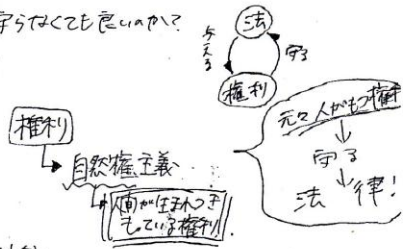 守らなくても良いのか?
法
与える
守る
権利
権利
自然権主義
人間が生まれつき
もっている権利
元々人がもつ権利
守る
法律!